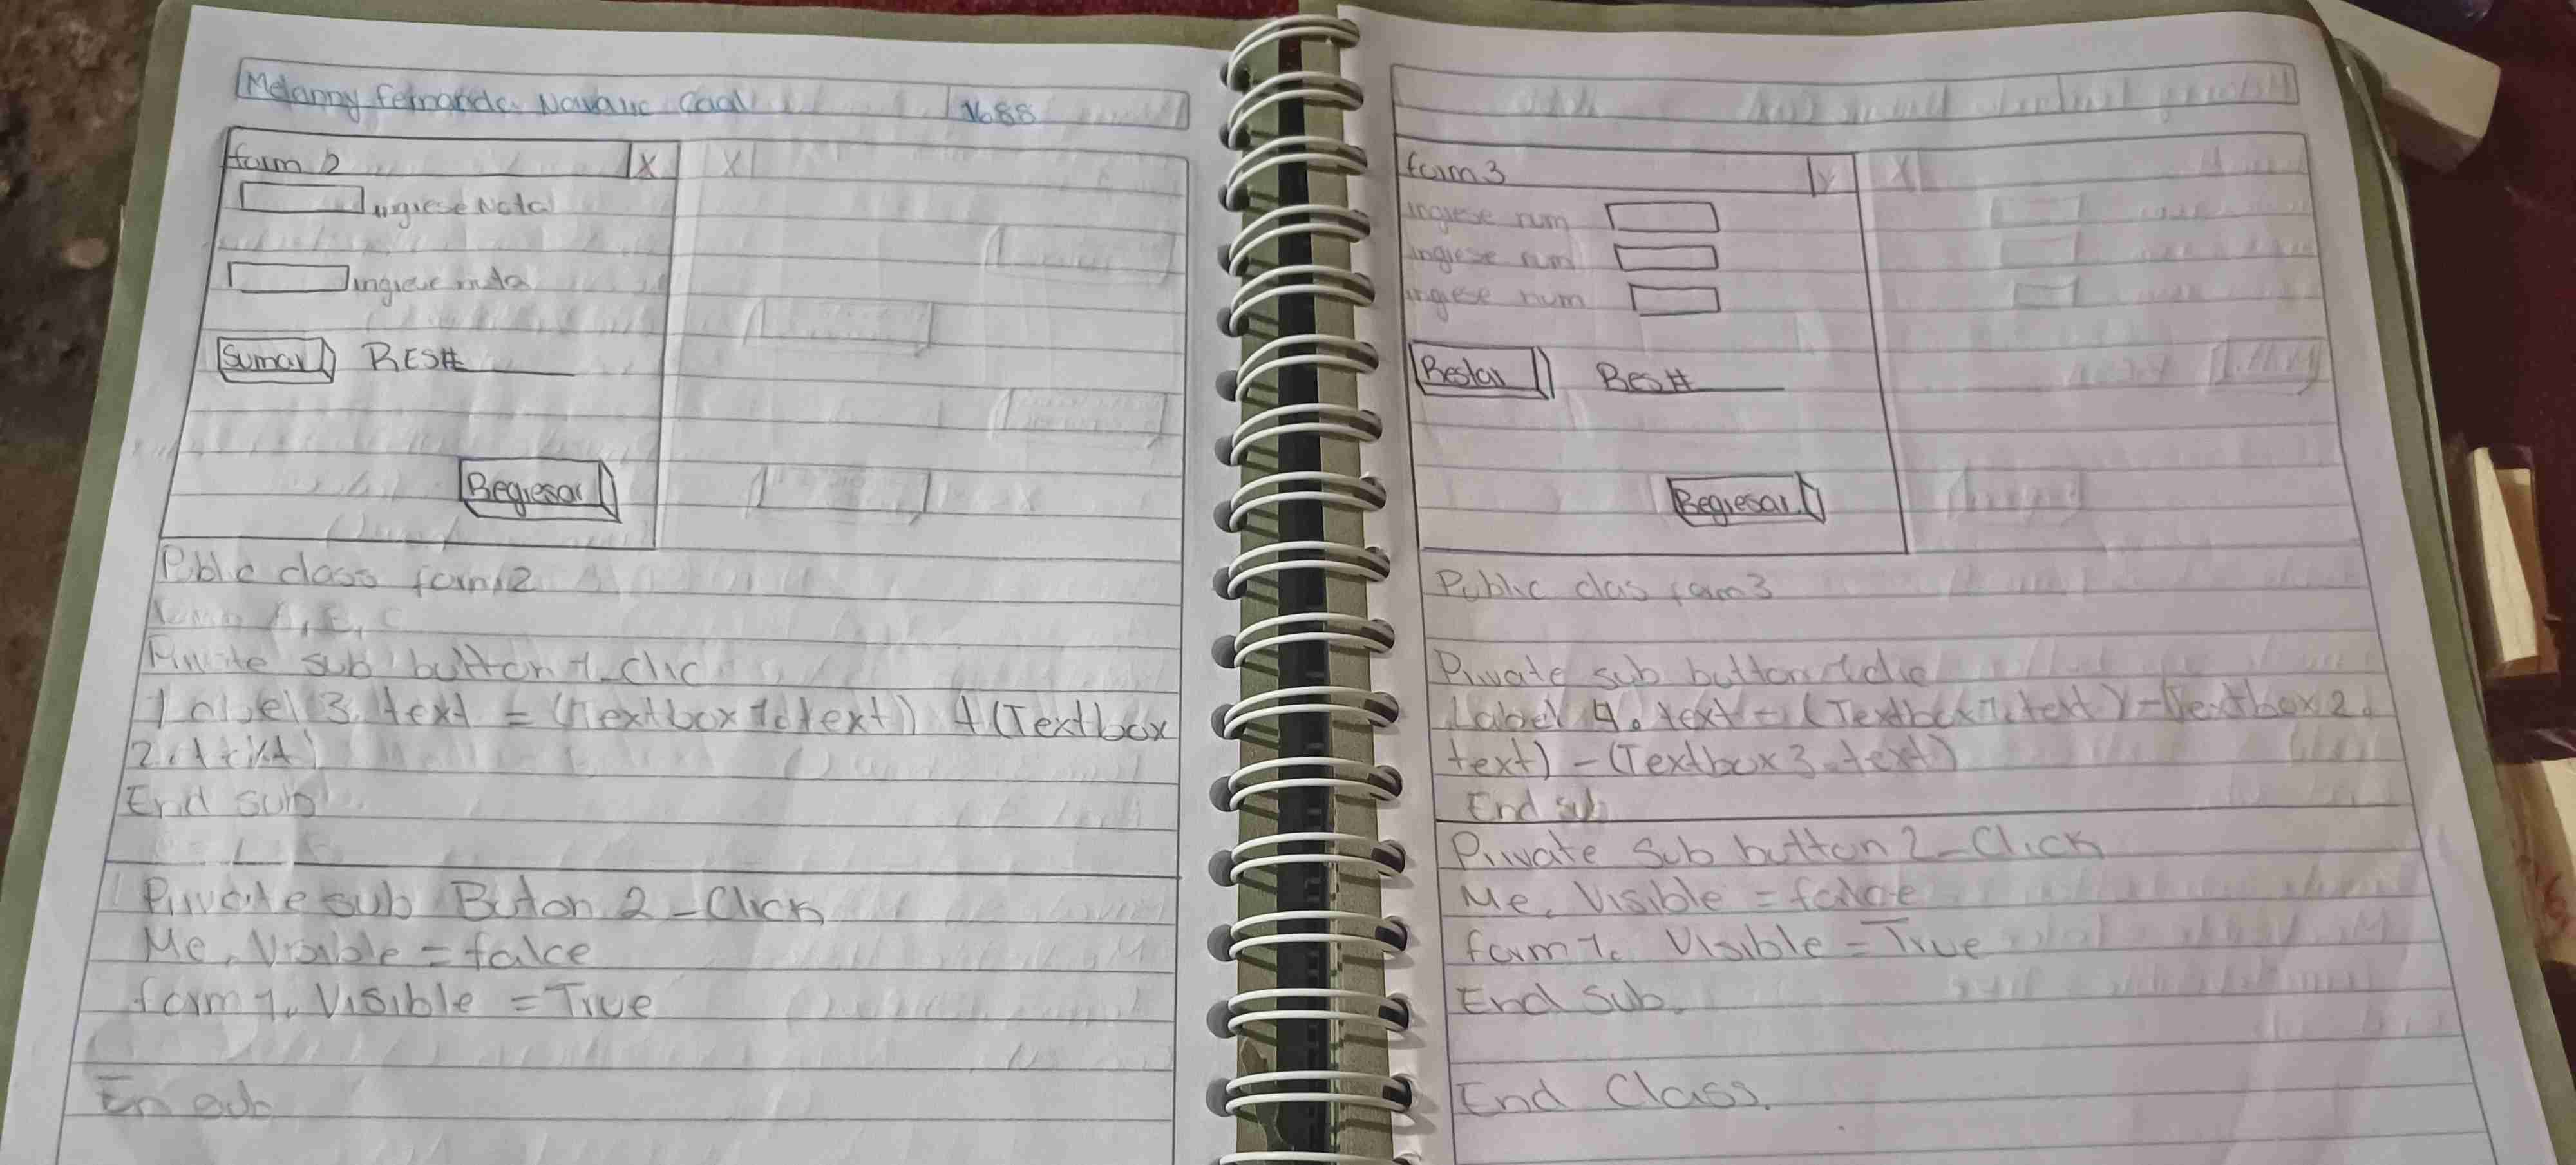 Melanny Fernanda Navarro Caal 1688
form 2 X
ingrese Nota
ingrese nota
Sumar RES#
Regresar
Pblic class form,2
A, B, C
Private sub button 1_Clic
Label 3. text = (Textbox 1. text) + (Textbox
2. text)
End sub
Private sub Buton 2_Click
Me. Visible = falce
form 1. Visible = True
En sub
form 3 X
ingrese num
ingrese num
ingrese num
Restar Res#
Regresar
Public clas form3
Private sub button 1 clic
Label 4. text = (Textbox 1. text) - (Textbox 2.
text) - (Textbox 3. text)
End sub
Private Sub button 2_Click
Me. Visible = falce
form 1. Visible = True
End Sub.
End Class.